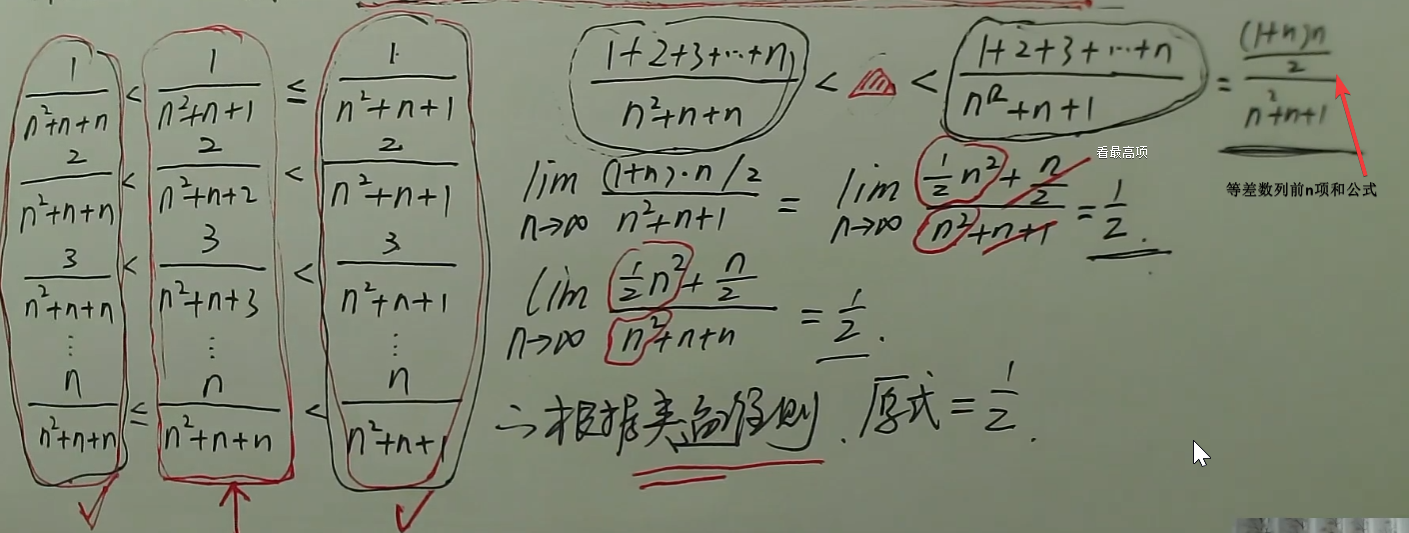 1/(n²+n+n) < 1/(n²+n+1) ≤ 1/(n²+n+1)
2/(n²+n+n) < 2/(n²+n+2) < 2/(n²+n+1)
3/(n²+n+n) < 3/(n²+n+3) < 3/(n²+n+1)
⋮ ⋮ ⋮
n/(n²+n+n) ≤ n/(n²+n+n) < n/(n²+n+1)
(1+2+3+⋯+n)/(n²+n+n) < △ < (1+2+3+⋯+n)/(n²+n+1) = ((1+n)n/2)/(n²+n+1)
等差数列前n项和公式
lim n→∞ ((1+n)·n/2)/(n²+n+1) = lim n→∞ (½n²+n/2)/(n²+n+1) = 1/2.
看最高项
lim n→∞ (½n²+n/2)/(n²+n+n) = 1/2.
∴根据夹逼准则、原式=1/2.